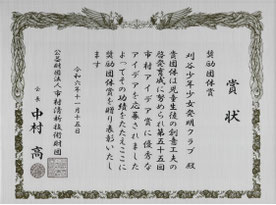 賞状
奨励団体賞
刈谷少年少女発明クラブ 殿
貴団体は児童生徒の創意工夫の
啓発育成に努められ第五十五回
市村アイデア賞に優秀な
アイデアを応募されました
よってその功績をたたえここに
奨励団体賞を贈り表彰いたし
ます
令和六年十一月十五日
公益財団法人市村清新技術財団
会長 中村高